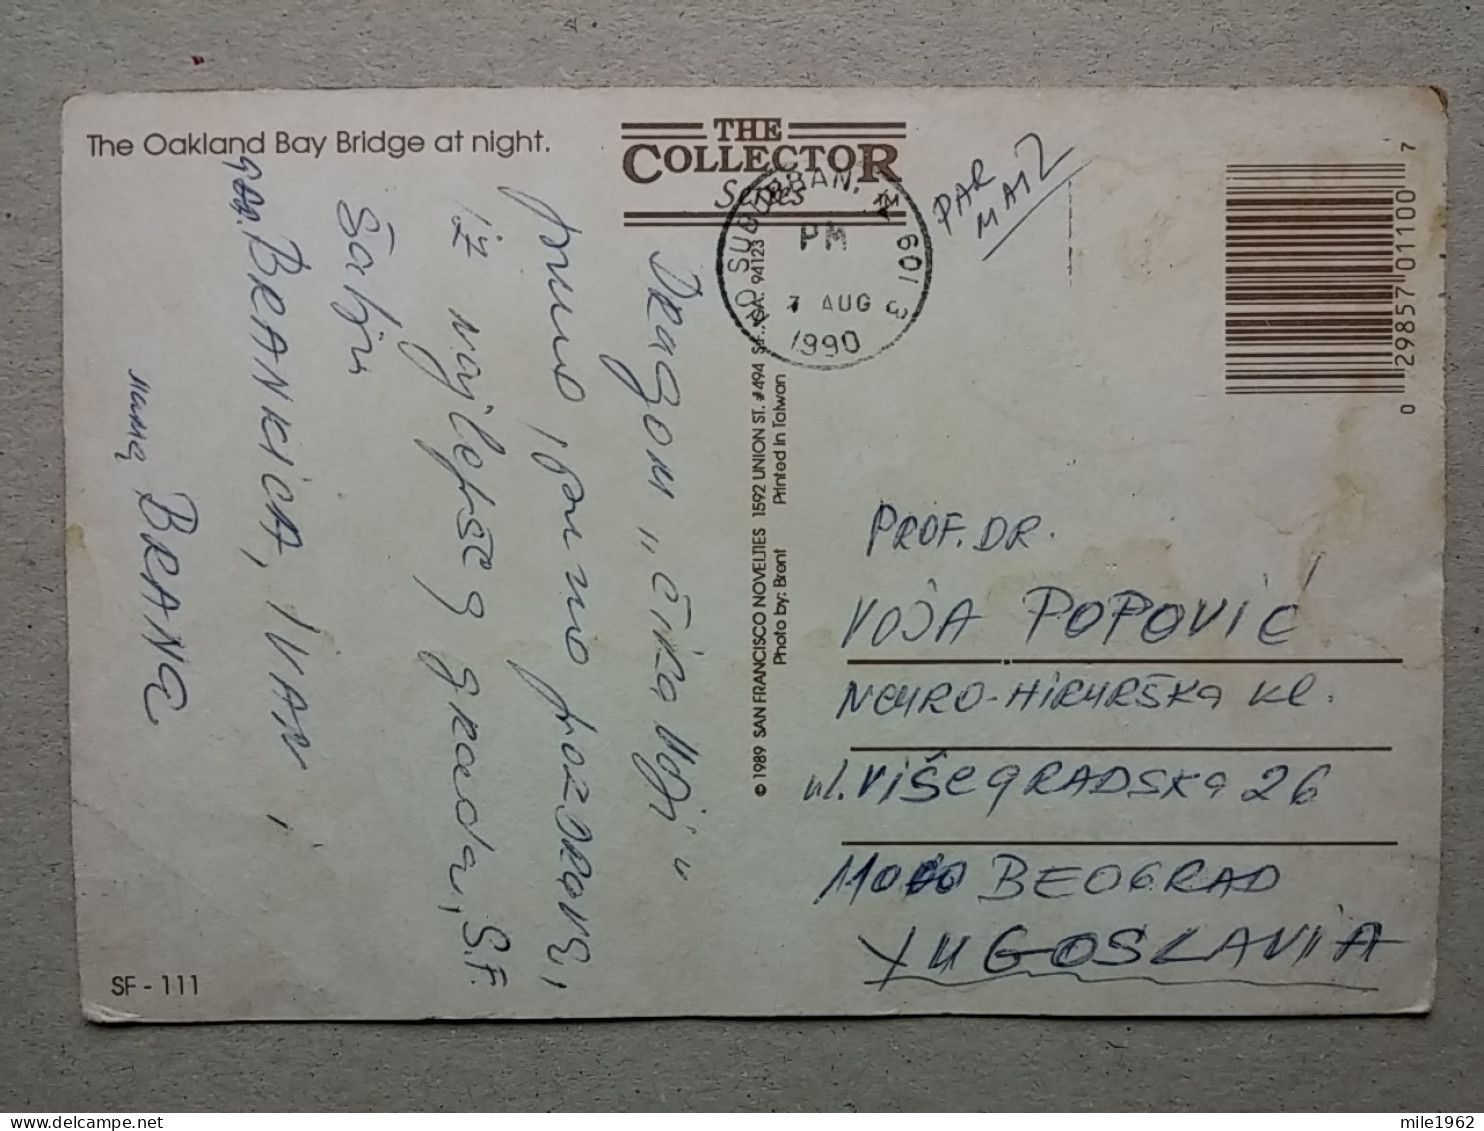 The Oakland Bay Bridge at night.
THE
COLLECTOR
Series
NO SUBURBAN, IL 601
PM
7 AUG
1990
PAR
MAIL
0 29857 01100 7
Dragom „čika Voji“
puno, puno pozdrava,
iz najlepšeg grada, S.F.
šalju
BRANKICA, IVAN i
mama BRANA
© 1989 SAN FRANCISCO NOVELTIES 1592 UNION ST. #494 S.F., CA. 94123
Photo by: Brent Printed in Taiwan
PROF. DR.
VOJA POPOVIĆ
NEURO-HIRURŠKA KL.
ul. VIŠEGRADSKA 26
11000 BEOGRAD
YUGOSLAVIA
SF - 111
mile1962